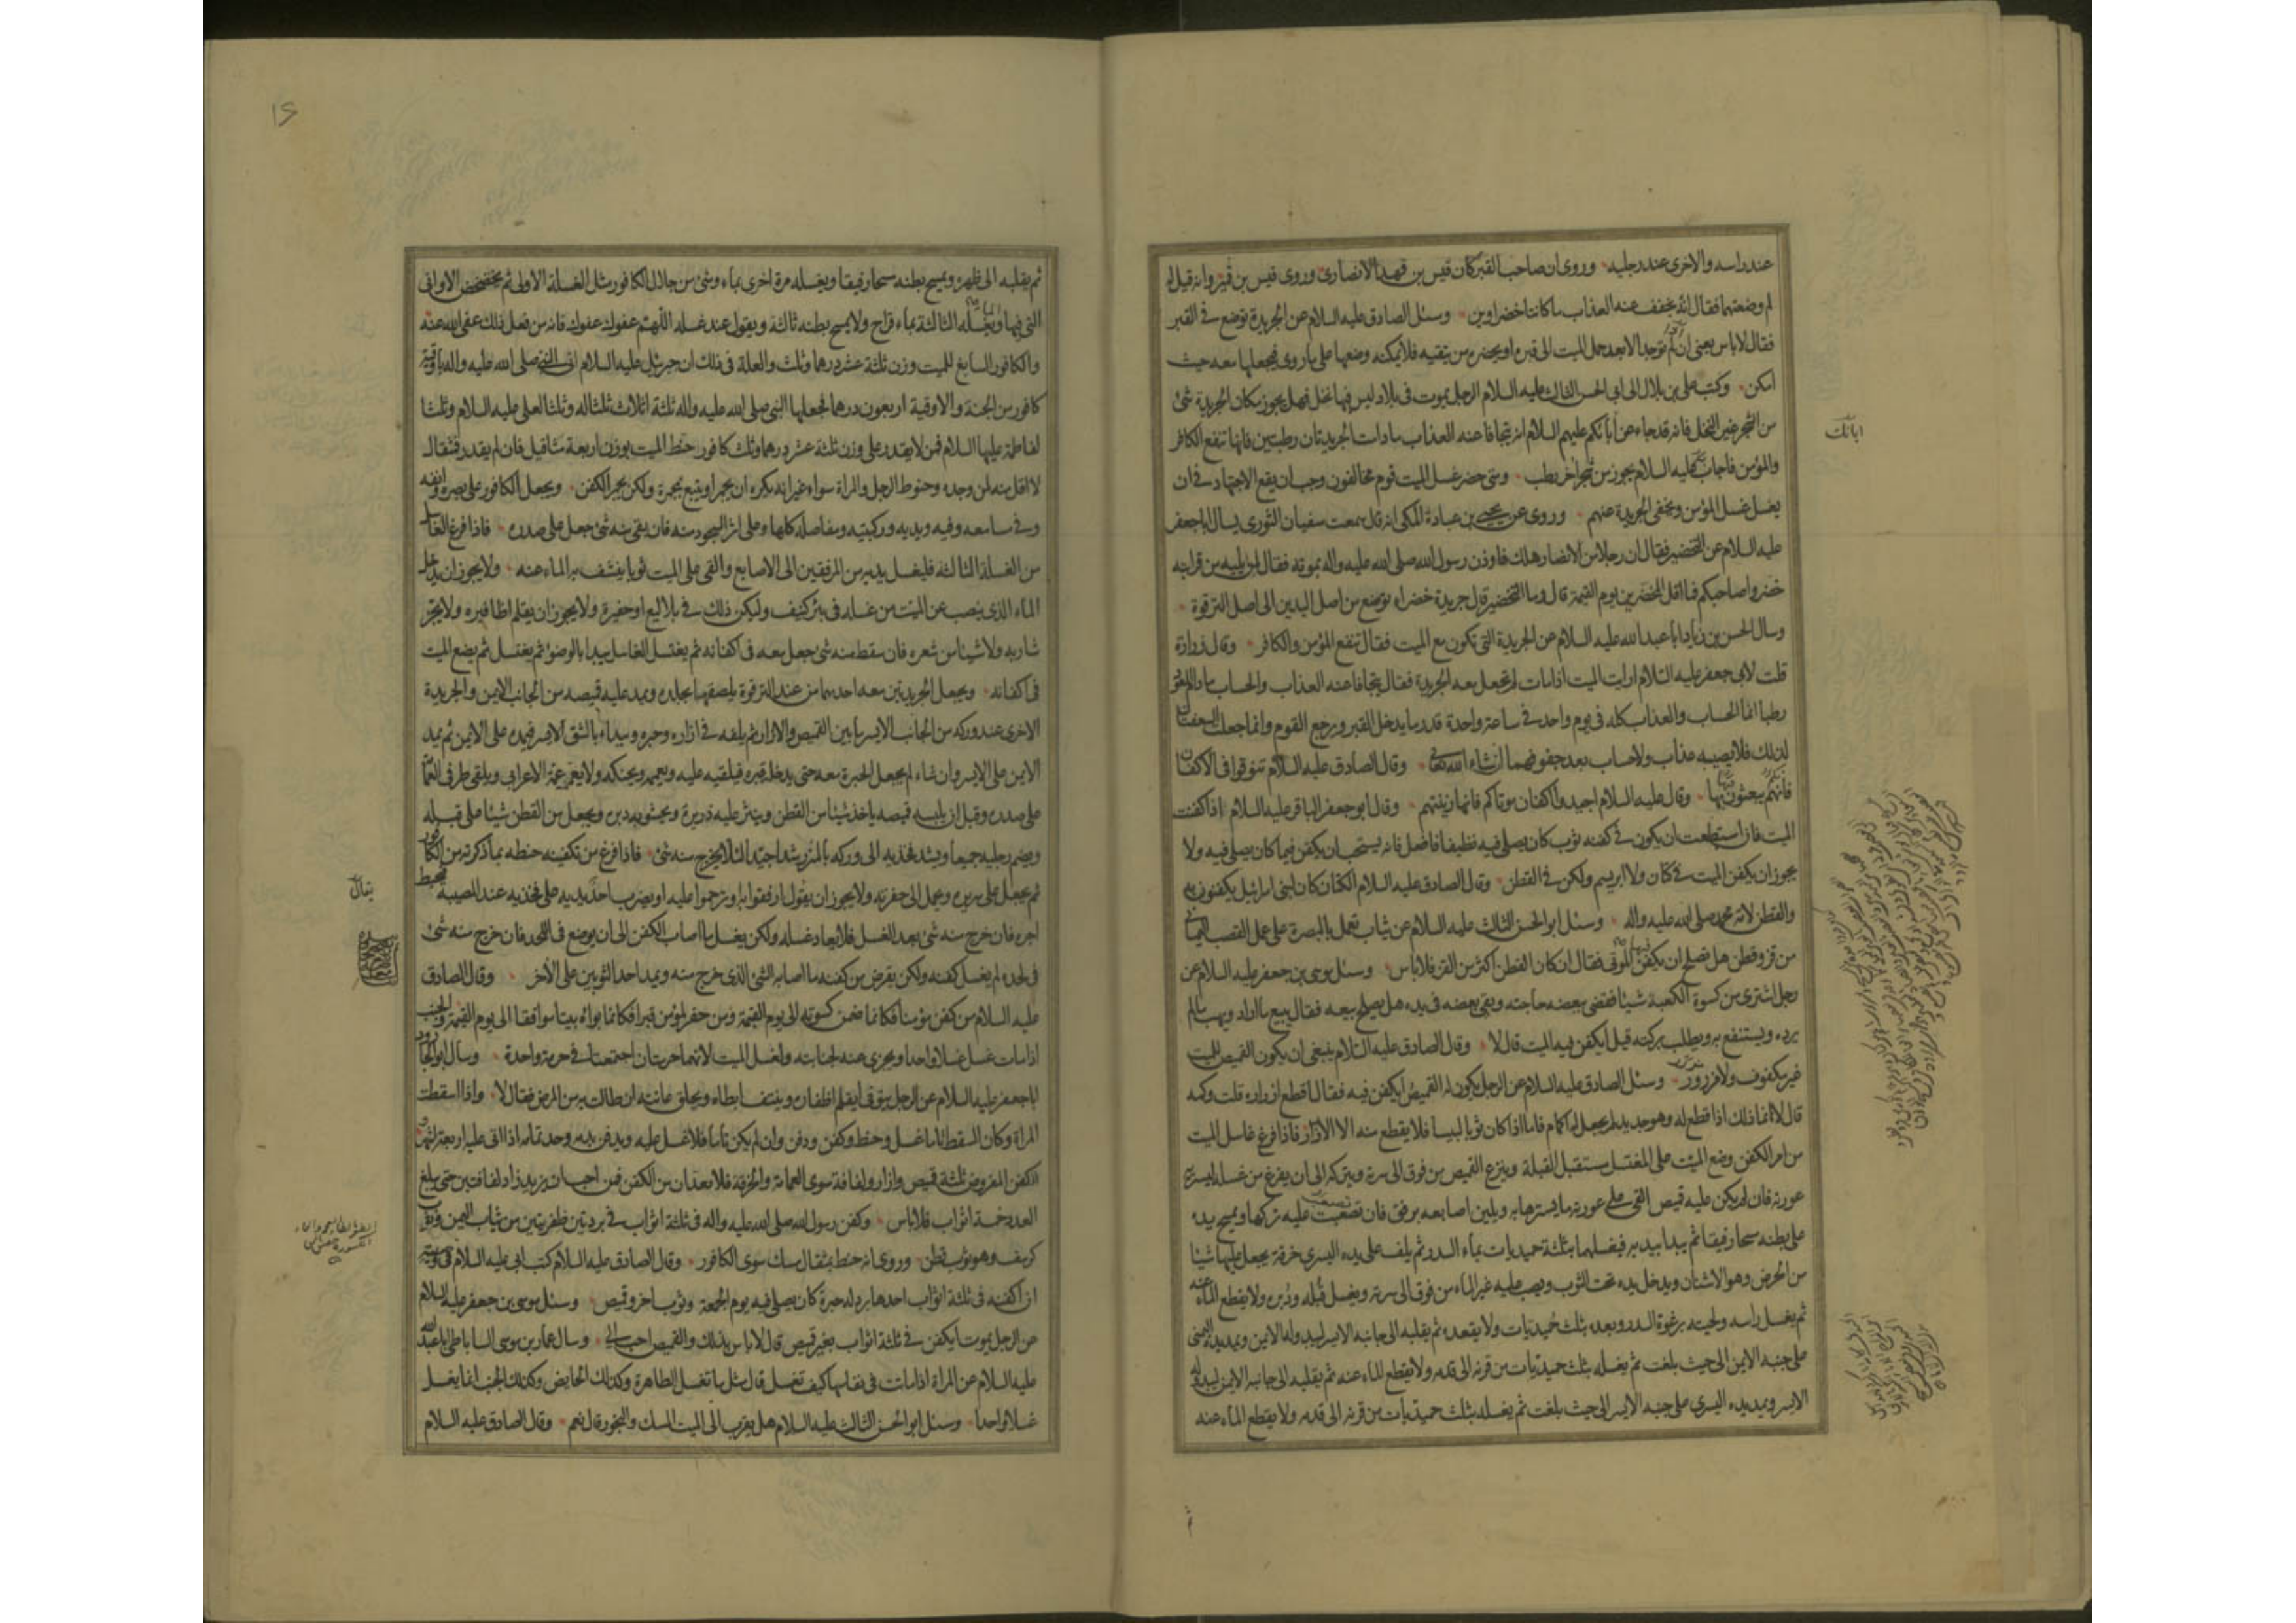 عند راسه والاخرى عند رجليه وروى ان صاحب القبر كان قيس بن فهد الانصارى وروى قيس بن قمير وانه قيل له
لم وضعتهما فقال انه يخفف عنه العذاب ما كانتا خضراوين وسئل الصادق عليه السلام عن الجريدة توضع فى القبر
فقال لا باس يعنى ان لم توجد الا بعد حمل الميت الى قبره او يحضره من يتقيه فلا يمكنه وضعها على ما روى فيجعلها معه حيث
امكن وكتب على بن بلال الى ابى الحسن الثالث عليه السلام الرجل يموت فى بلاد ليس فيها نخل فهل يجوز مكان الجريدة شئ
من الشجر غير النخل فانه قد جاء عن آبائكم عليهم السلام انه يتجافا عنه العذاب ما دامت الجريدتان رطبتين فانها تنفع الكافر
والمؤمن فاجاب عليه السلام يجوز من شجر اخر رطب ومتى حضر غسل الميت قوم مخالفون وجب ان يقع الاجتهاد فى ان
يغسل غسل المؤمن ويخفى الجريدة عنهم وروى عن يحيى بن عبادة المكى انه قال سمعت سفيان الثورى يسال ابا جعفر
عليه السلام عن التخضير فقال ان رجلا من الانصار هلك فاوذن رسول الله صلى الله عليه واله بموته فقال لمن يليه من قرابته
خضروا صاحبكم فما اقل المخضرين يوم القيمة قال وما التخضير قال جريدة خضراء توضع من اصل اليدين الى اصل الترقوة
وسال الحسن بن زياد ابا عبد الله عليه السلام عن الجريدة التى تكون مع الميت فقال تنفع المؤمن والكافر وقال زرارة
قلت لابى جعفر عليه السلام ارايت الميت اذا مات لم تجعل معه الجريدة فقال يتجافا عنه العذاب والحساب ما دام العود
رطبا انما الحساب والعذاب كله فى يوم واحد فى ساعة واحدة قدر ما يدخل القبر ويرجع القوم وانما جعلت السعفتان
لذلك فلا يصيبه عذاب ولا حساب بعد جفوفهما ان شاء الله تعالى وقال الصادق عليه السلام تنوقوا فى الاكفان
فانهم يبعثون بها وقال عليه السلام اجيدوا اكفان موتاكم فانها زينتهم وقال ابو جعفر الباقر عليه السلام اذا كفنت
الميت فان استطعت ان يكون فى كفنه ثوب كان يصلى فيه نظيفا فافعل فانه يستحب ان يكفن فيما كان يصلى فيه ولا
يجوز ان يكفن الميت فى كتان ولا ابريسم ولكن فى القطن وقال الصادق عليه السلام الكتان كان لبنى اسرائيل يكفنون به
والقطن لامة محمد صلى الله عليه واله وسئل ابو الحسن الثالث عليه السلام عن ثياب تعمل بالبصرة على عمل القصب اليمانى
من قز وقطن هل تصلح ان يكفن فيها الموتى فقال ان كان القطن اكثر من القز فلا باس وسئل موسى بن جعفر عليه السلام عن
رجل اشترى من كسوة الكعبة شيئا فقضى ببعضه حاجته وبقى بعضه فى يده هل يصلح بيعه فقال يبيع ما اراد ويهب ما لم
يرده ويستنفع به ويطلب بركته قيل ايكفن فيه الميت قال لا وقال الصادق عليه السلام ينبغى ان يكون القميص للميت
غير مكفوف ولا مزرور وسئل الصادق عليه السلام عن الرجل يكون له القميص ايكفن فيه فقال اقطع ازراره قلت وكمه
قال لا انما ذلك اذا قطع له وهو جديد لم يجعل له اكمام فاما اذا كان ثوبا لبيسا فلا يقطع منه الا الازرار فاذا فرغ غاسل الميت
من امر الكفن وضع الميت على المغتسل مستقبل القبلة وينزع القميص من فوق الى سرته ويتركه الى ان يفرغ من غسله ليستر به
عورته فان لم يكن عليه قميص القى على عورته ما يسترها به ويلين اصابعه برفق فان تصعبت عليه تركها ويمسح يده
على بطنه مسحا رفيقا ثم يبدا بيديه فيغسلهما بثلثة حميديات بماء السدر ثم يلف على يده اليسرى خرقة يجعل عليها شيئا
من الحرض وهو الاشنان ويدخل يده تحت الثوب ويصب عليه غيره الماء من فوق الى سرته ويغسل قبله ودبره ولا يقطع الماء عنه
ثم يغسل راسه ولحيته برغوة السدر وبعده بثلث حميديات ولا يقعده ثم يقلبه الى جانبه الايسر ليبدو له الايمن ويمد يده اليمنى
على جنبه الايمن الى حيث بلغت ثم يغسله بثلث حميديات من قرنه الى قدمه ولا يقطع الماء عنه ثم يقلبه الى جانبه الايمن ليبدو له
الايسر ويمد يده اليسرى على جنبه الايسر الى حيث بلغت ثم يغسله بثلث حميديات من قرنه الى قدمه ولا يقطع الماء عنه
ابائك
ثم
١٥
ثم يقلبه الى ظهره ويمسح بطنه مسحا رفيقا ويغسله مرة اخرى بماء وشئ من جلال الكافور مثل الغسلة الاولى ثم يخضخض الاوانى
التى فيها ويغسله الثالثة بماء قراح ولا يمسح بطنه ثالثة ويقول عند غسله اللهم عفوك عفوك فانه من فعل ذلك عفى الله عنه
والكافور السابغ للميت وزن ثلثة عشر درهما وثلث والعلة فى ذلك ان جبرئيل عليه السلام اتى النبى صلى الله عليه واله باوقية
كافور من الجنة والاوقية اربعون درهما فجعلها النبى صلى الله عليه واله ثلثة اثلاث ثلثا له وثلثا لعلى عليه السلام وثلثا
لفاطمة عليها السلام فمن لا يقدر على وزن ثلثة عشر درهما وثلث كافور حنط الميت بوزن اربعة مثاقيل فان لم يقدر فمثقال
لا اقل منه لمن وجده وحنوط الرجل والمراة سواء غير انه يكره ان يجمر او يتبع بمجمرة ولكن يجمر الكفن ويجعل الكافور على بصره وانفه
وفى مسامعه وفيه ويديه وركبتيه ومفاصله كلها وعلى اثر السجود منه فان بقى منه شئ جعل على صدره فاذا فرغ الغاسل
من الغسلة الثالثة فليغسل يديه من المرفقين الى الاصابع والقى على الميت ثوبا ينشف به الماء عنه ولا يجوز ان يدخل
الماء الذى ينصب عن الميت من غسله فى بئر كنيف وليكن ذلك فى بلاليع او حفيرة ولا يجوز ان يقلم اظافيره ولا يجز
شاربه ولا شيئا من شعره فان سقط منه شئ جعل معه فى اكفانه ثم يغتسل الغاسل يبدا بالوضوء ثم يغتسل ثم يضع الميت
فى اكفانه ويجعل الجريدتين معه احديهما من عند الترقوة يلصقها بجلده ويمد عليه قميصه من الجانب الايمن والجريدة
الاخرى عند وركه من الجانب الايسر ما بين القميص والازار ثم يلفه فى ازاره وحبره ويبداء بالشق الايسر فيمده على الايمن ثم يمد
الايمن على الايسر وان شاء لم يجعل الحبرة معه حتى يدخله قبره فيلقيه عليه ويعممه ويحنكه ولا يعممه عمة الاعرابى ويلقى طرفى العمامة
على صدره وقبل ان يلبسه قميصه ياخذ شيئا من القطن وينثر عليه ذريرة ويحشو به دبره ويجعل من القطن شيئا على قبله
ويضم رجليه جميعا ويشد فخذيه الى وركه بالمئزر شدا جيدا لئلا يخرج منه شئ فاذا فرغ من تكفينه حنطه بما ذكرته من الكافور
ثم يجعل على سريره ويحمل الى حفرته ولا يجوز ان يقول ارفقوا به او ترحموا عليه او يضرب احد يديه على فخذيه عند المصيبة فيحبط
اجره فان خرج منه شئ بعد الغسل فلا يعاد غسله ولكن يغسل ما اصاب الكفن الى ان يوضع فى اللحد فان خرج منه شئ
فى لحده لم يغسل كفنه ولكن يقرض من كفنه ما اصابه الشئ الذى خرج منه ويمد احد الثوبين على الاخر وقال الصادق
عليه السلام من كفن مؤمنا فكانما ضمن كسوته الى يوم القيمة ومن حفر لمؤمن قبرا فكانما بوأه بيتا موافقا الى يوم القيمة والجنب
اذا مات غسل غسلا واحدا ويجزى عنه لجنابته ولغسل الميت لانهما حرمتان اجتمعتا فى حرمة واحدة وسال ابو الجارود
ابا جعفر عليه السلام عن الرجل يتوفى ايقلم اظفاره وينتف ابطاه ويحلق عانته ان طالت به من المرض فقال لا واذا اسقطت
المراة وكان السقط تاما غسل وحنط وكفن ودفن وان لم يكن تاما فلا غسل عليه ويدفن بدمه وحد تمامه اذا اتى عليه اربعة اشهر
الكفن المفروض ثلثة قميص وازار ولفافة سوى العمامة والخرقة فلا يعدان من الكفن فمن احب ان يزيد زاد لفافتين حتى يبلغ
العدد خمسة اثواب فلا باس وكفن رسول الله صلى الله عليه واله فى ثلثة اثواب فى بردتين ظفريتين من ثياب اليمن وثوب
كرسف وهو ثوب قطن وروى انه حنط بمثقال مسك سوى الكافور وقال الصادق عليه السلام كتب ابى عليه السلام فى وصيته
ان اكفنه فى ثلثة اثواب احدها برد له حبرة كان يصلى فيه يوم الجمعة وثوب اخر وقميص وسئل موسى بن جعفر عليه السلام
عن الرجل يموت ايكفن فى ثلثة اثواب بغير قميص قال لا باس بذلك والقميص احب الى وسال عمار بن موسى الساباطى ابا عبد الله
عليه السلام عن المراة اذا ماتت فى نفاسها كيف تغسل قال مثل ما تغسل الطاهرة وكذلك الحايض وكذلك الجنب انما يغسل
غسلا واحدا وسئل ابو الحسن الثالث عليه السلام هل يقرب الى الميت المسك والبخور قال نعم وقال الصادق عليه السلام